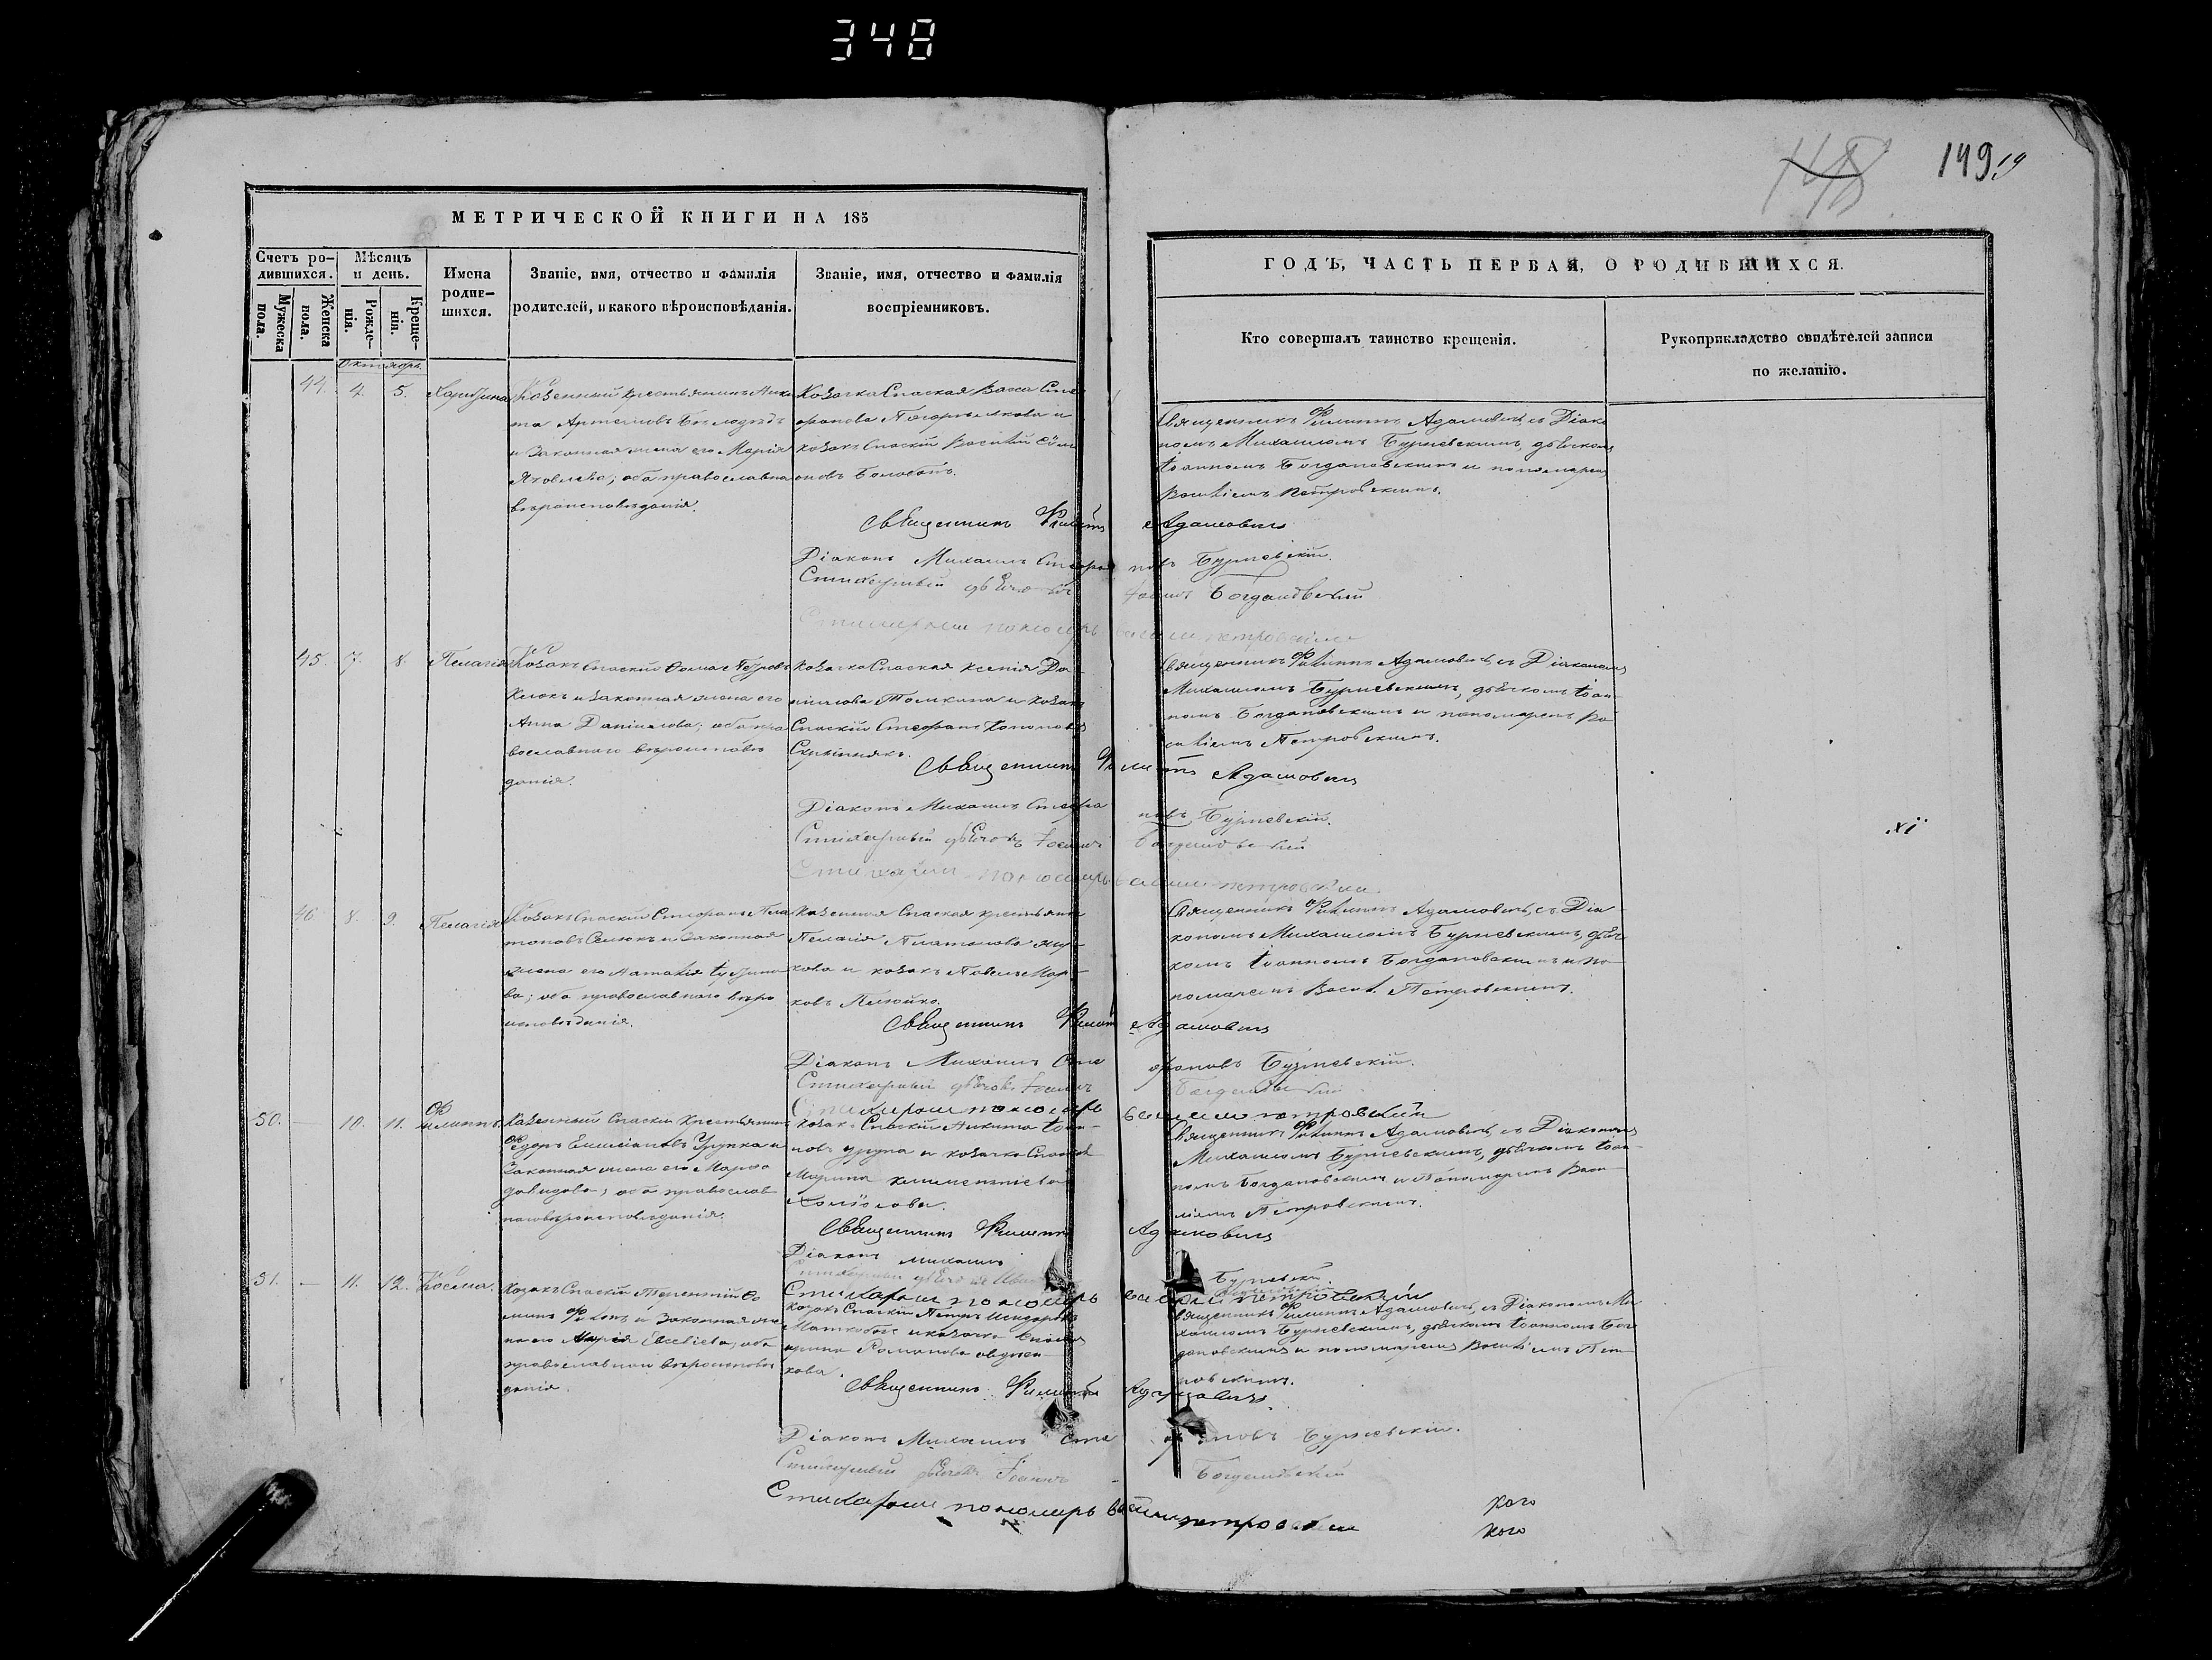 348
148
149 19
МЕТРИЧЕСКОЙ КНИГИ НА 185
ГОДЪ, ЧАСТЬ ПЕРВАЯ, О РОДИВШИХСЯ.
Счетъ ро-
дившихся.
Мужеска
пола.
Женска
пола.
Мѣсяцъ
и день.
Рожде-
нія.
Креще-
нія.
Имена
родив-
шихся.
Званіе, имя, отчество и фамилія
родителей, и какого вѣроисповѣданія.
Званіе, имя, отчество и фамилія
воспріемниковъ.
Кто совершалъ таинство крещенія.
Рукоприкладство свидѣтелей записи
по желанію.
Октябрь
44. 4. 5. Харитина
Казенный крестьянинъ Ники
та Артемовъ
и законная жена его Марія
Яковлева; оба православна
вѣроисповѣданія.
Козачка Спаская Васса Сте
фанова и
козакъ Спаскій Василій
Священникъ Филиппъ Адамовичь съ Діако
номъ Михаиломъ Бурчевскимъ, дьячкомъ
Іоанномъ Богдановскимъ и пономарем
Василіемъ Петровскимъ.
Священникъ Филиппъ Адамовичъ
Діаконъ Михаилъ Стефановъ Бурчевскій.
Стихарный дьячокъ Іоаннъ Богдановскій
Стихарный пономарь Василій Петровскій
45. 7. 8. Пелагія
Козакъ Спаскій Ѳома Петровъ
Клюкъ и законная жена его
Анна Даніилова; оба пра
вославнаго вѣроисповѣ
данія.
Козачка Спаская Ксенія Да
ніилова Толкина и козакъ
Спаскій Стефанъ Кононовъ
Скрипнякъ.
Священникъ Филиппъ Адамовичь, съ Діакономъ
Михаиломъ Бурчевскимъ, дьячкомъ Іоан
номъ Богдановскимъ и пономаремъ Ва
силіемъ Петровскимъ.
Священникъ Филиппъ Адамовичъ
Діаконъ Михаилъ Стефановъ Бурчевскій.
Стихарный дьячокъ Іоаннъ Богдановскій
Стихарный пономарь Василій Петровскій
46 8. 9. Пелагія
Козакъ Спаскій Стефанъ Пла
тоновъ Селюкъ и законная
жена его Наталія Іустино
ва; оба православнаго вѣро
исповѣданія.
Казенная Спаская крестьянка
Пелагія Платонова
кова и козакъ Павелъ Мар-
ковъ
Священникъ Филиппъ Адамовичь, съ Діа
кономъ Михаиломъ Бурчевскимъ, дьяч
комъ Іоанномъ Богдановскимъ и по
номаремъ Васил. Петровскимъ.
Священникъ Филиппъ Адамовичъ
Діаконъ Михаилъ Стефановъ Бурчевскій.
Стихарный дьячокъ Іоаннъ Богдановскій
Стихарный пономарь Василій Петровскій
50. — 10. 11. Филиппъ
Казенный Спаскій Крестьянинъ
Ѳедоръ Емиліановъ и
законная жена его Марѳа
Давидова; оба православ
наго вѣроисповѣданія.
Козакъ Спаскій Никита Іоан-
новъ и козачка Спаская
Марина Климентіева
Священникъ Филиппъ Адамовичь, съ Діакономъ
Михаиломъ Бурчевскимъ, дьячкомъ Іоан
номъ Богдановскимъ и Пономаремъ Васи
ліемъ Петровскимъ.
Священникъ Филиппъ Адамовичъ
Діаконъ Михаилъ Бурчевскій.
Стихарный дьячокъ
Стихарный пономарь Василій Петровскій
51. — 11. 12. Косма.
Козакъ Спаскій Терентій Ѳо
минъ и законная же
на его Марія Евсеіева; оба
православнаго вѣроисповѣ
данія.
Козакъ Спаскій Петръ
и козачка Спаская
Ирина Романова
кова.
Священникъ Филиппъ Адамовичь, съ Діакономъ Ми
хаиломъ Бурчевскимъ, дьячкомъ Іоанномъ Бог
дановскимъ и пономаремъ Василіемъ Пет
ровскимъ.
Священникъ Филиппъ Адамовичъ.
Діаконъ Михаилъ Стефановъ Бурчевскій.
Стихарный дьячокъ Іоаннъ Богдановскій
Стихарный пономарь Василій Петровскій
кого
кого